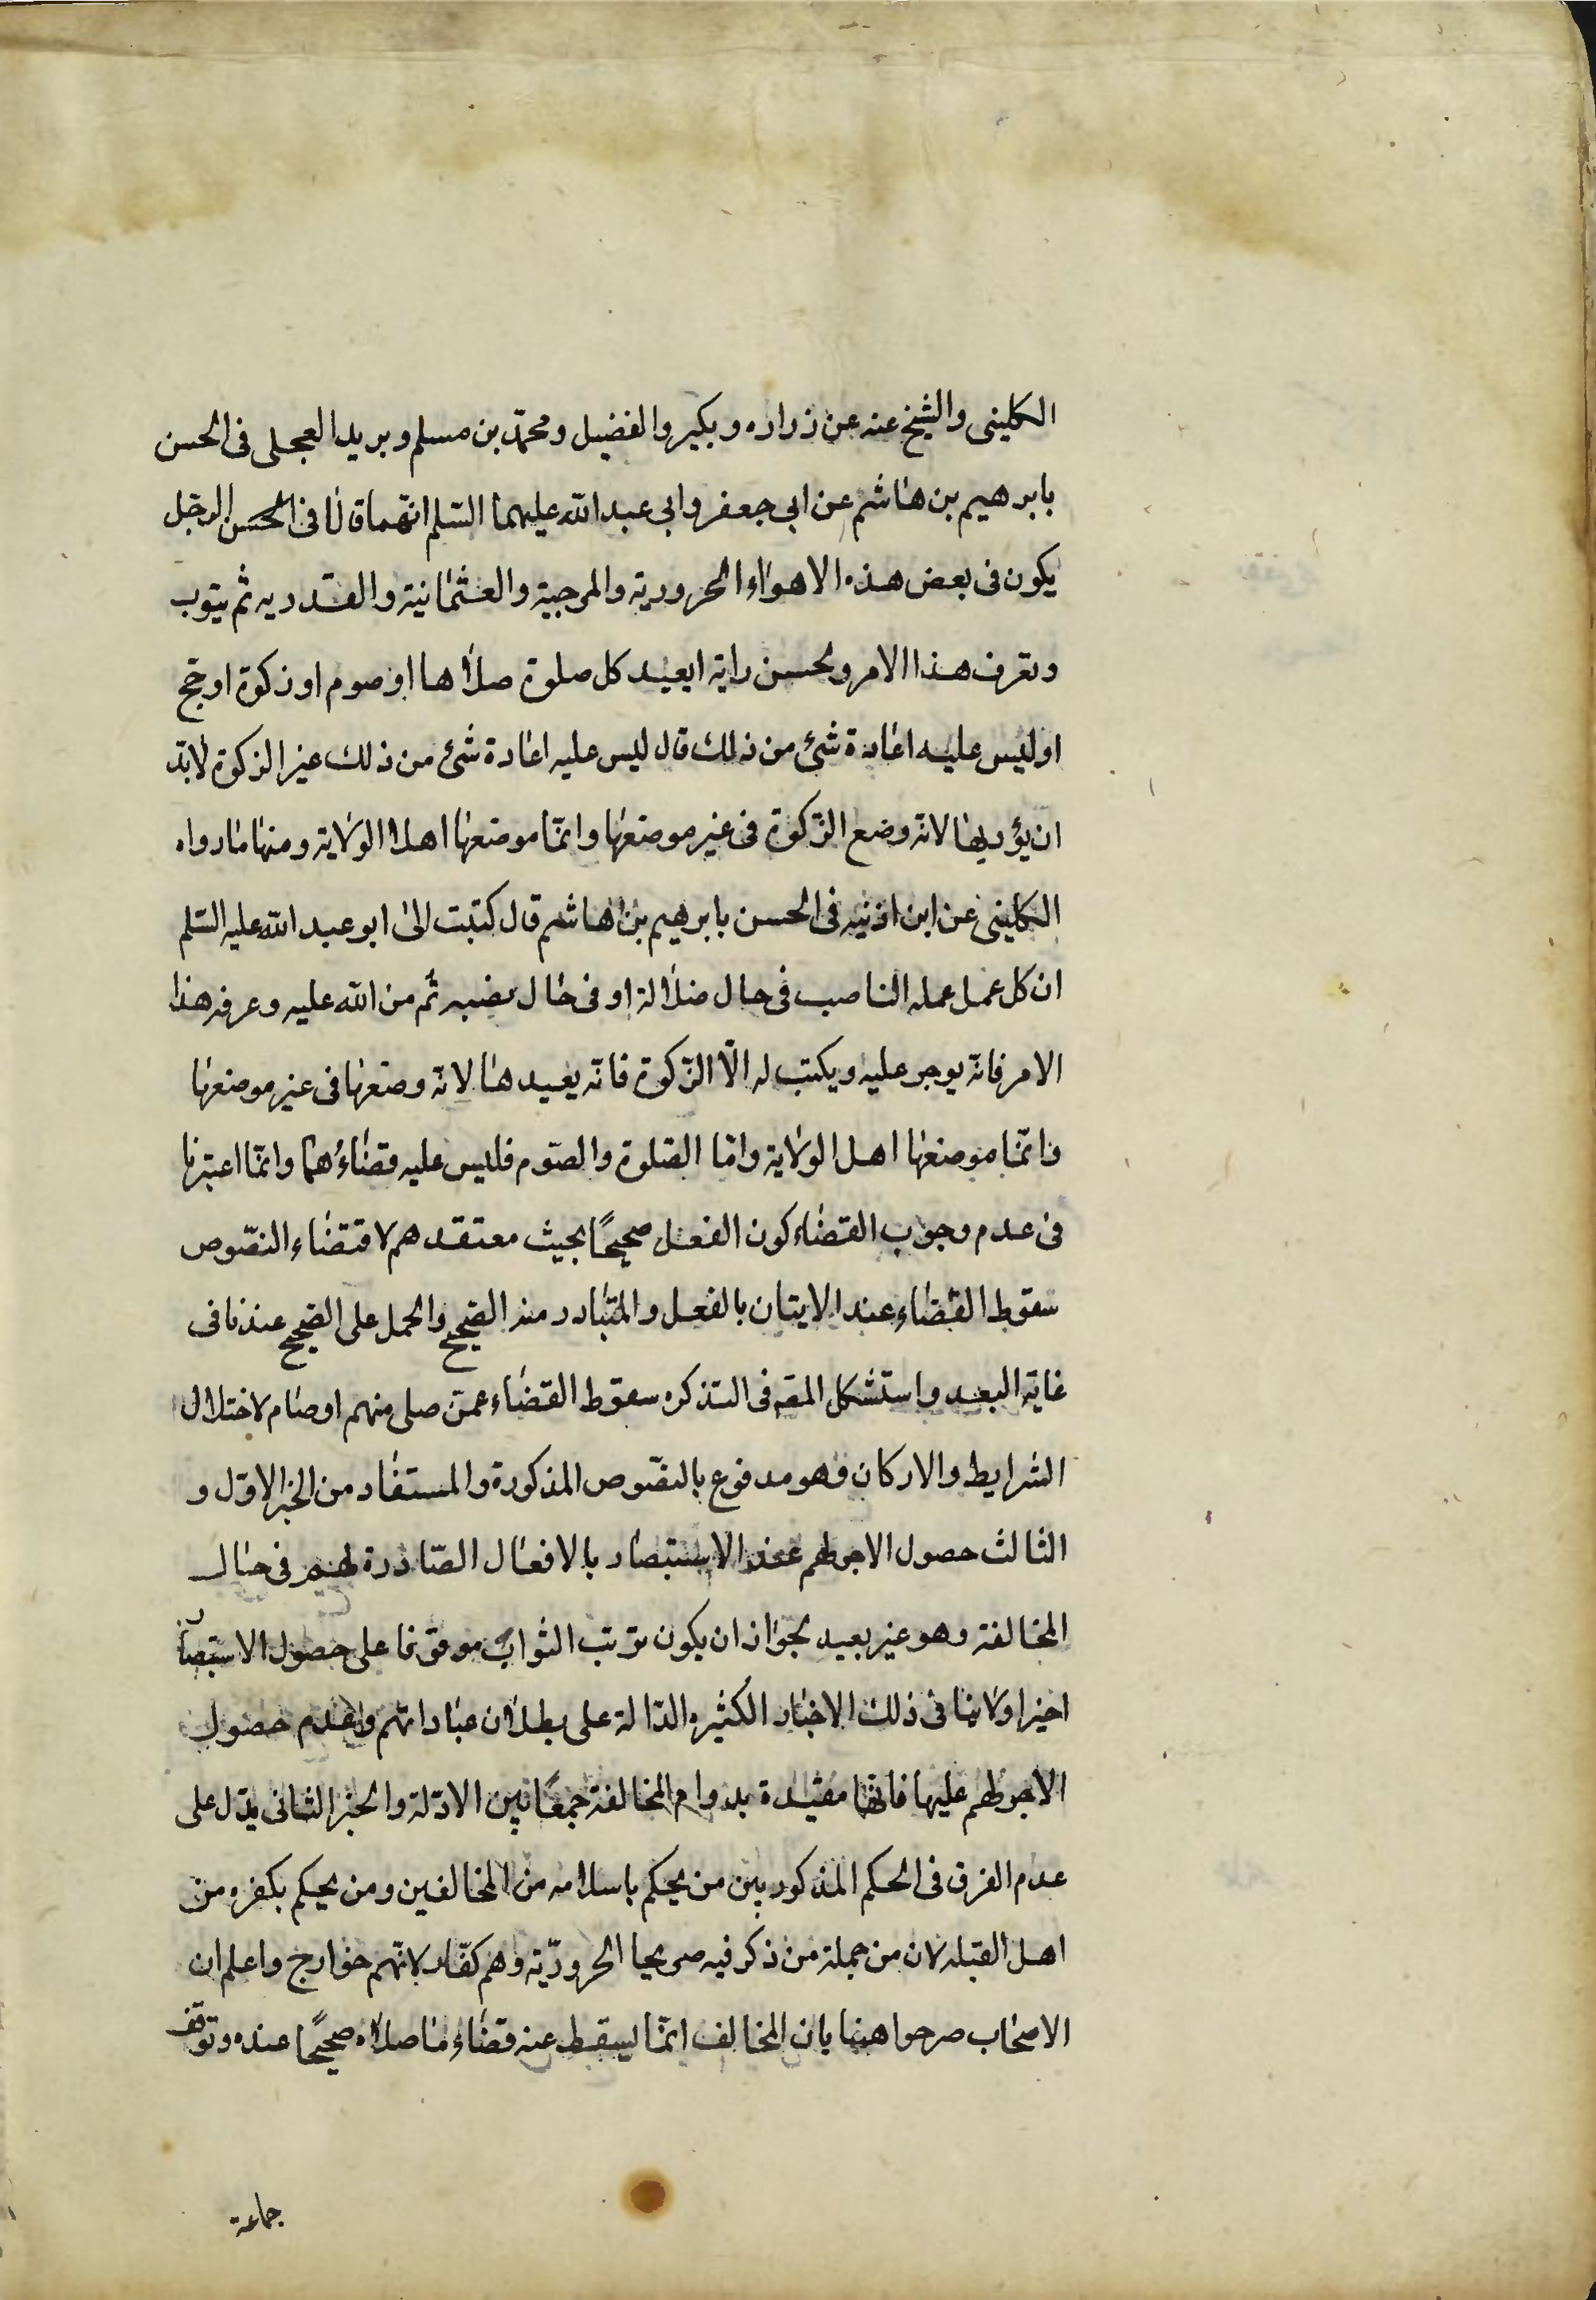 الكلينى والشيخ عنه عن زراره وبكير والفضيل ومحمّد بن مسلم وبريد العجلى فى الحسن
بابرهيم بن هاشم عن ابى جعفر وابى عبد الله عليهما السّلم انّهما قالا فى الرجل
يكون فى بعض هذه الاهواء الحروريّه والمرجية والعثمانيّة والقدريه ثم يتوب
وتعرف هذا الامر ويحسن رايه ايعيد كل صلوة صلاها او صوم او زكوة او حج
او ليس عليه اعادة شئ من ذلك قال ليس عليه اعادة شئ من ذلك غير الزكوة لابدّ
ان يؤديها لانّه وضع الزّكوة فى غير موضعها وانّما موضعها اهل الولاية ومنها مارواه
الكلينى عن ابن اذنيه فى الحسن بابرهيم بن هاشم قال كتبت الى ابو عبد الله عليه السّلم
ان كل عمل عمله الناصب فى حال ضلالة او فى حال نصبه ثم من الله عليه وعرفه هذا
الامر فانّه يوجر عليه ويكتب له الّا الزّكوة فانّه يعيدها لانّه وضعها فى غير موضعها
فانّما موضعها اهل الولاية وامّا الصّلوة والصّوم فليس عليه قضاءهما وانّما اعتبرنا
فى عدم وجوب القضاء كون الفعل صحيحًا بحيث معتقدهم لاقتضاء النصّوص
سقوط القضاء عند الايتان بالفعل والمتبادر منه الصّحيح والحمل على الصّحيح عندنا فى
غاية البعد واستشكل المصّ فى التذكره سقوط القضاء عمن صلى منهم او صام لاختلال
الشرايط والاركان وهو مدفوع بالنصّوص المذكورة والمستفاد من الخبر الاوّل و
الثالث حصول الاجر لهم عند الاستبصار بالافعال الصّادرة لهم فى حال
المخالفة وهو غير بعيد لجواز ان يكون ترتب الثواب موقوفا على حصول الاستبصار
اخيرا ولا ينافى ذلك الاخبار الكثيره الدّالة على بطلان عباداتهم وعدم حصول
الاجر لهم عليها فانّها مقيّدة بدوام المخالفة جمعًا بين الادّلة والخبر الثانى يدّل على
عدم الفرق فى الحكم المذكور بين من يحكم باسلامه من المخالفين ومن يحكم بكفره من
اهل القبله لان من جملة من ذكر فيه صريحا الحروريّة وهم كفّار لانّهم خوارج واعلم ان
الاصحاب صرحوا هنا بان المخالف انّما يسقط عنه قضاء ما صلاه صحيحًا عنده وتوقّف
جماعة